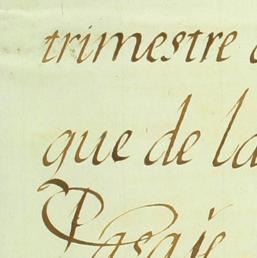 trimestre
que de la
Pasaje